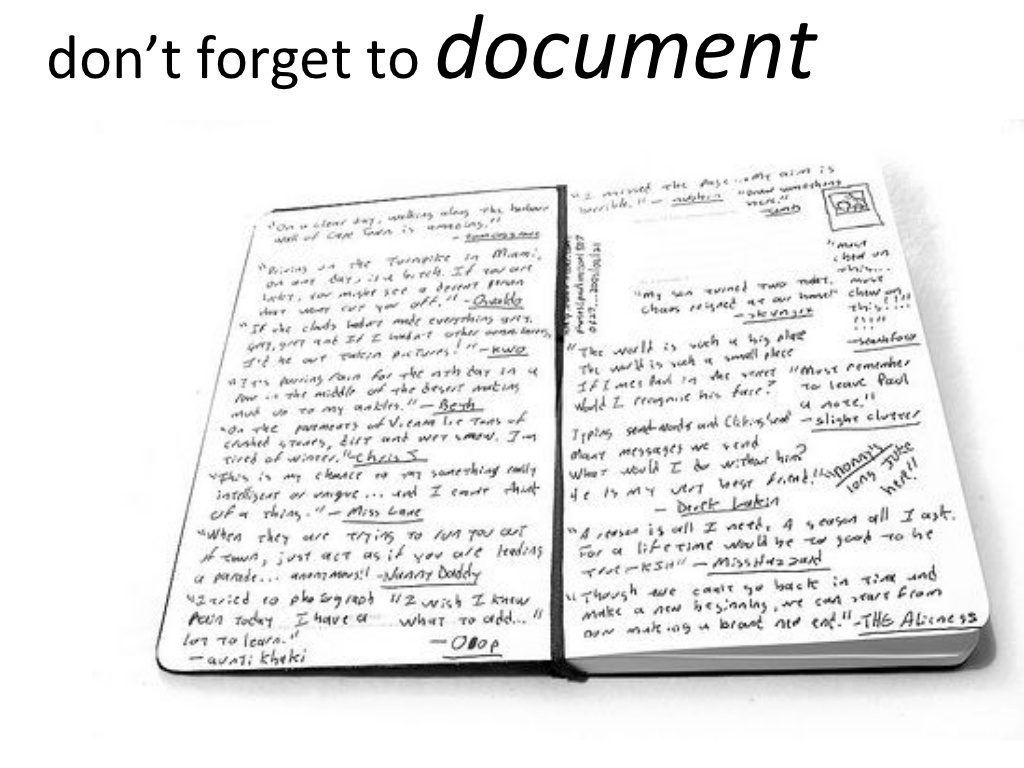 don't forget to document
"On a clear day, walking along the harbour
wall of Cape Town is amazing."
"Driving on the Turnpike in Miami,
on any day, is a bitch. If you are
lucky, you might see a decent person
that wont cut you off." - Osvaldo
"If the clouds hadn't made everything grey,
grey, grey and If I hadn't other
I'd be out takin pictures!" - KWO
"It's pouring rain for the nth day in a
row in the middle of the desert making
mud up to my ankles." - Beth
"On the pavements of Vienna lie tons of
crushed stones, dirt and wet snow. I'm
tired of winter." - Chris J
"This is my chance to say something really
intelligent or unique... and I can't think
of a thing." - Miss Lane
"When they are trying to run you out
of town, just act as if you are leading
a parade... anonymous!! - Nanny Daddy
"I tried to photograph
rain today I have a
lot to learn."
- aunti Khaki
"I wish I knew
what to add..."
- Ooop
"I missed the page... My aim is
horrible." -
"Draw something
here."
"Must
chew on
this...
must
chew on
this!!!!
!!!!!
"My son turned two today,
chaos reigned at our house"
"The world is such a big place
The world is such a small place
If I met Paul in the street
Would I recognise his face?
Typing send words and
Many messages we send
What would I do without him?
He is my very best friend!"
- Derek Lakin
"Must remember
to leave Paul
a note."
- slight clutter
"Nonny's
long Joke
here!!
"A reason is all I need, A season all I ask.
For a life time would be to good to be
true - - MissHazzard
"Though we can't go back in time and
make a new beginning, we can start from
now making a brand new end." - THE Alieness